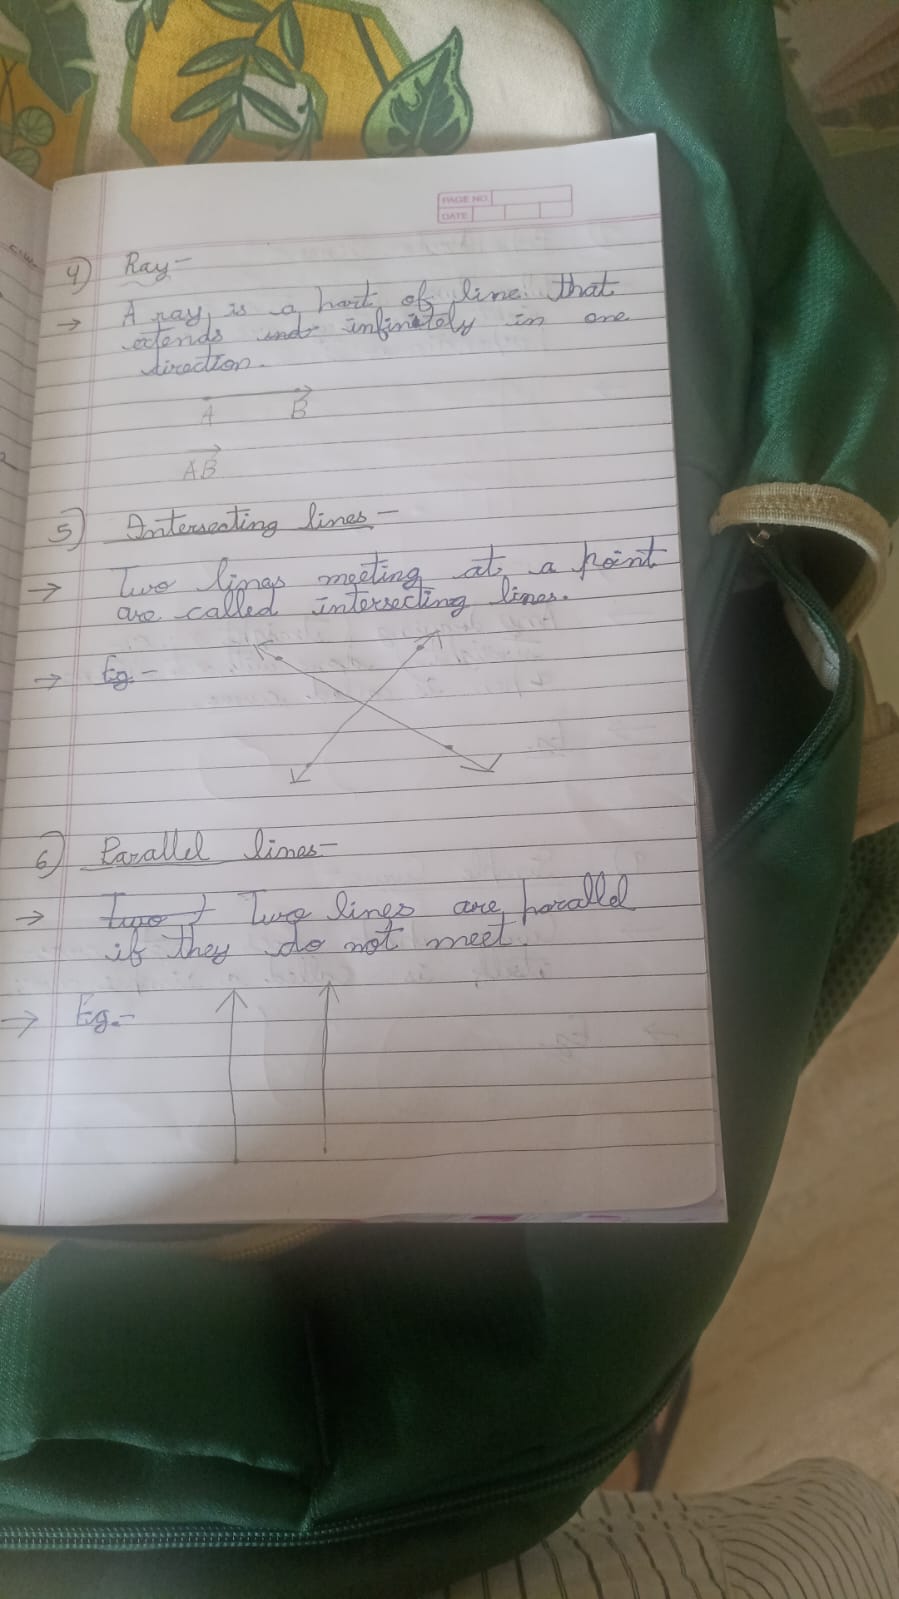 PAGE NO.
DATE
4) Ray-
→ A ray is a part of line that
extends infinitely in one
direction.
A B
AB
5) Intersecting lines-
→ Two lines meeting at a point
are called intersecting lines.
→ Eg.-
6) Parallel lines-
→ Two lines are parallel
if they do not meet.
→ Eg.-